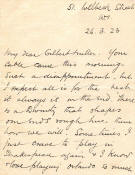 51. Welbeck Street
W1
26. 3. 23
My dear Gilbert Miller. Your
cable came this morning.
Such a disappointment. but
I expect all is for the best
it always is in the end. There
is a Divinity that shapes
our ends rough hew them
how we will. Some times I
just crave to play in
Shakespeare again & I know
love playing Orlando to